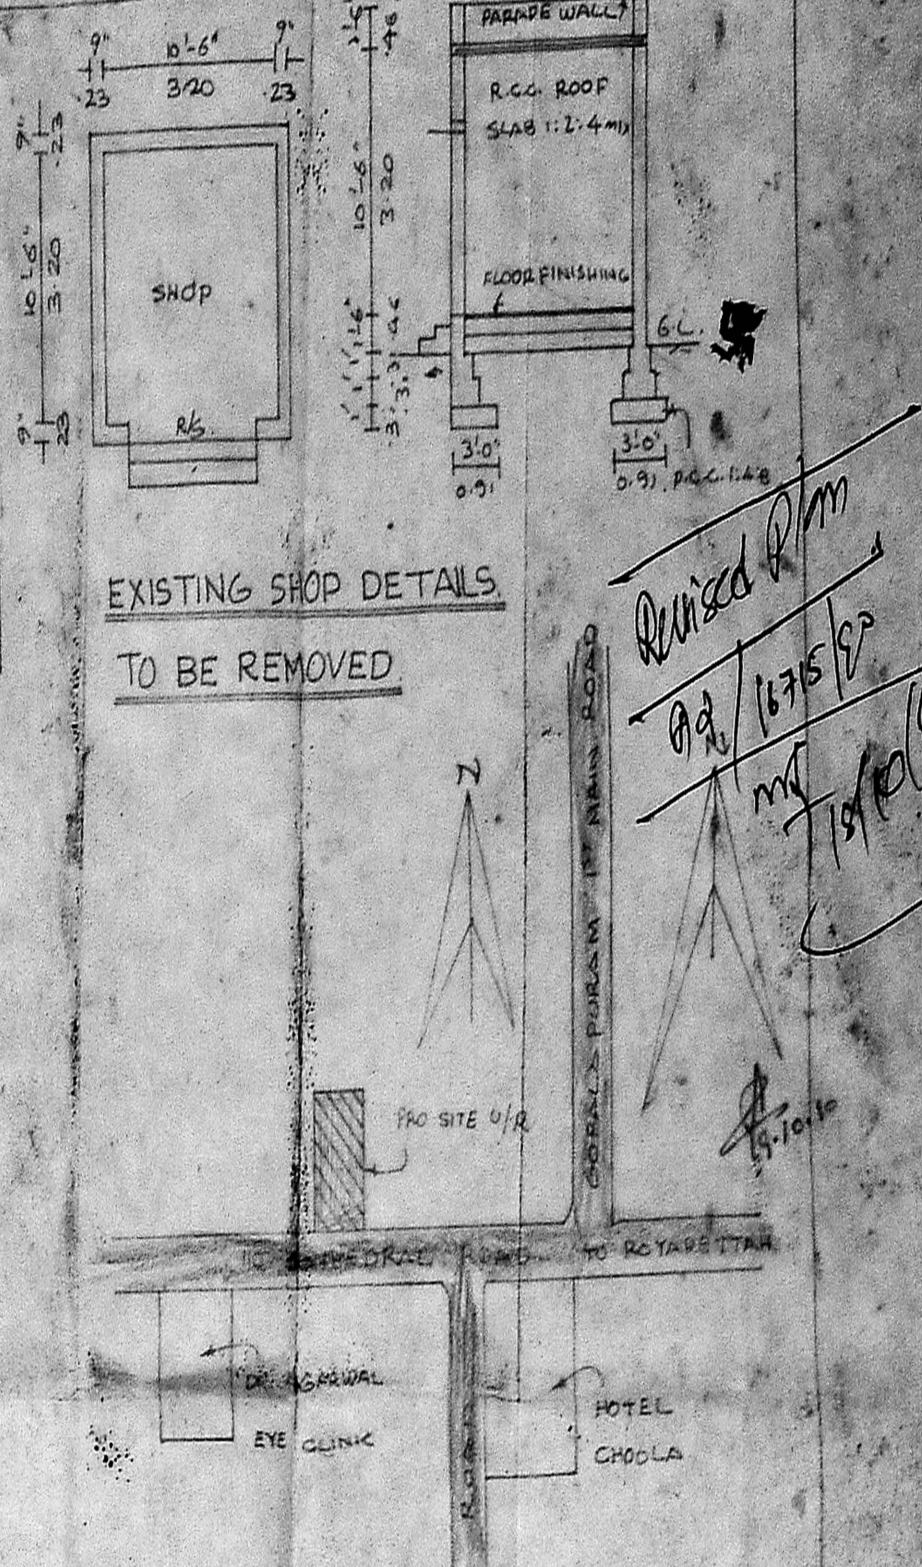 9"
10'-6"
9"
.23
3.20
.23
9"
.23
10'-6"
3.20
9"
.23
SHOP
R/S
.46
10'-6"
3.20
1'-6"
.46
PARADE WALL
R.C.C. ROOF
SLAB 1:2:4 MIX
FLOOR FINISHING
G.L.
3'-0"
0.91
3'-0"
0.91
P.C.C. 1:4:8
EXISTING SHOP DETAILS
TO BE REMOVED
Revised
N
N
GOPALAPURAM 1ST MAIN ROAD
PRO SITE U/R
19.10.10
TO CATHEDRAL ROAD
TO ROYAPETTAH
DR. AGARWAL
EYE CLINIC
ROAD
HOTEL
CHOOLA